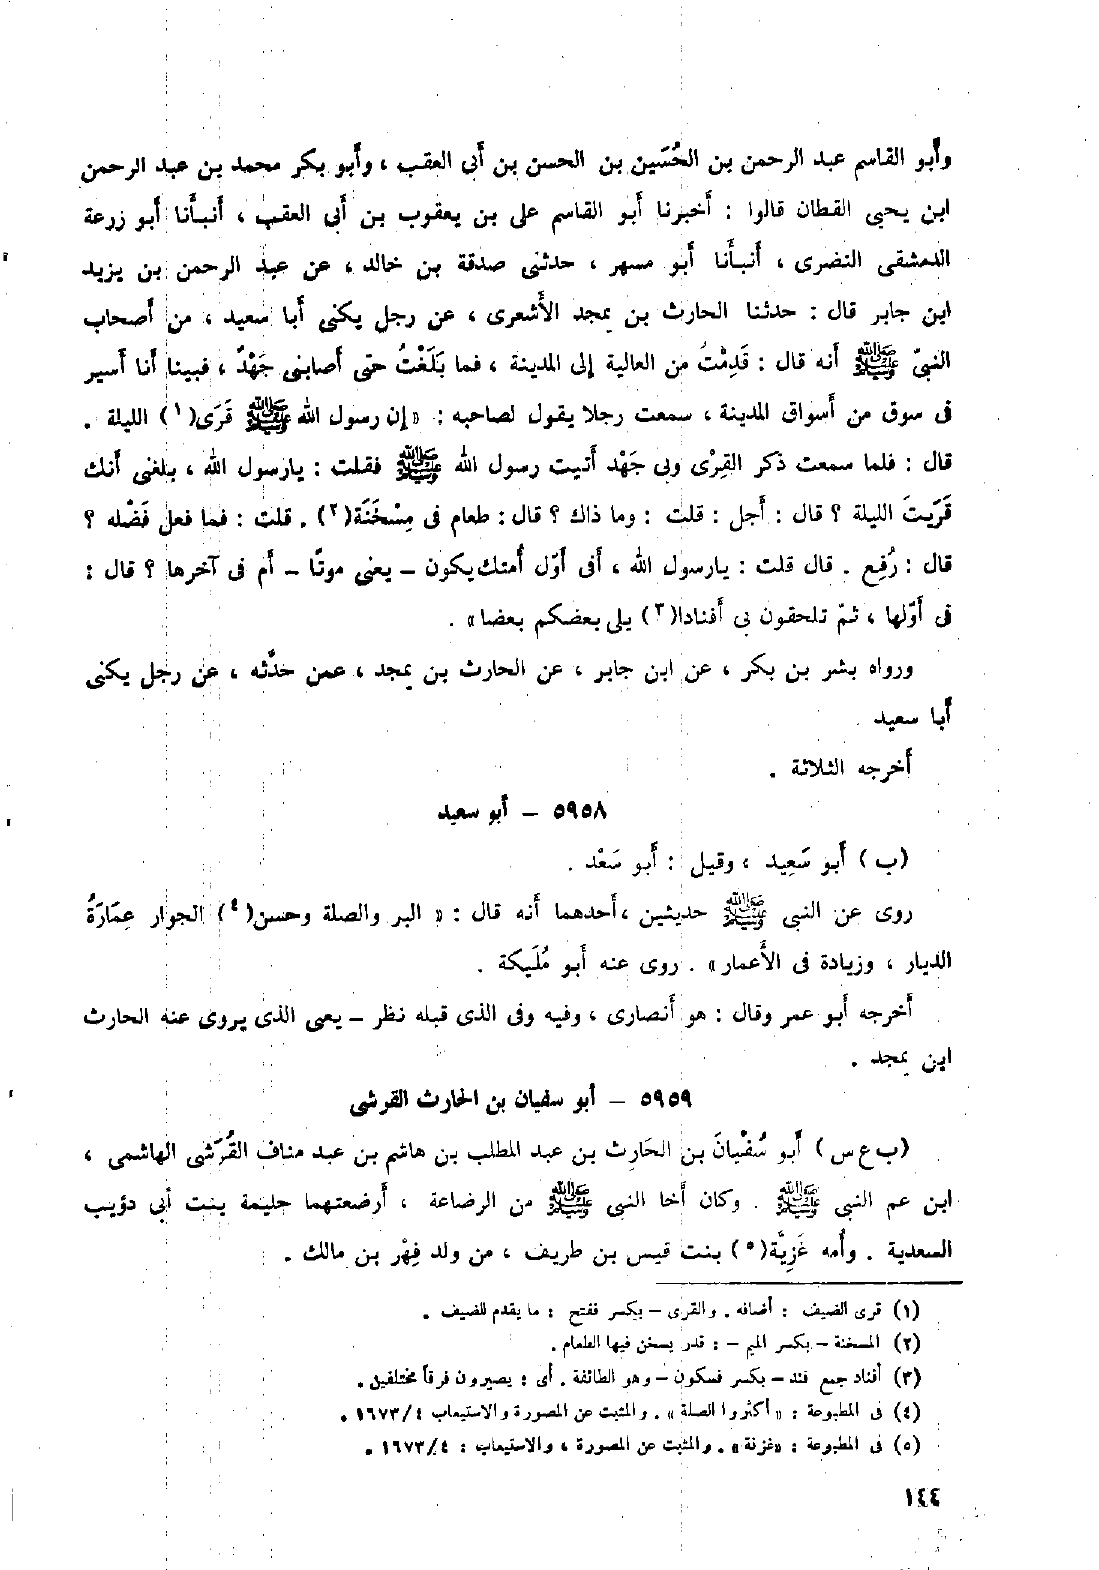 وأبو القاسم عبد الرحمن بن الحُسَين بن الحسن بن أبى العقب ، وأبو بكر محمد بن عبد الرحمن
ابن يحيى القطان قالوا : أخبرنا أبو القاسم على بن يعقوب بن أبى العقب ، أنبأنا أبو زرعة
الدمشقى النضرى ، أنبأنا أبو مسهر ، حدثنى صدقة بن خالد ، عن عبد الرحمن بن يزيد
ابن جابر قال : حدثنا الحارث بن يمجد الأشعرى ، عن رجل يكنى أبا سعيد ، من أصحاب
النبىّ ﷺ أنه قال : قَدِمْتُ من العالية إلى المدينة ، فما بَلَغْتُ حتى أصابنى جَهْدٌ ، فبينا أنا أسير
فى سوق من أسواق المدينة ، سمعت رجلا يقول لصاحبه : « إن رسول الله ﷺ قَرَى(١) الليلة .
قال : فلما سمعت ذكر القِرْى وبى جَهْد أتيت رسول الله ﷺ فقلت : يارسول الله ، بلغنى أنك
قَرَيتَ الليلة ؟ قال : أجل : قلت : وما ذاك ؟ قال : طعام فى مِسْخَنَة(٢) . قلت : فما فعل فَضْله ؟
قال : رُفِع . قال قلت : يارسول الله ، أفى أوّل أمتك يكون – يعنى موتًا – أم فى آخرها ؟ قال :
فى أوّلها ، ثمّ تلحقون بى أفنادا(٣) يلى بعضكم بعضا» .
ورواه بشر بن بكر ، عن ابن جابر ، عن الحارث بن يمجد ، عمن حدَّثه ، عن رجل يكنى
أبا سعيد .
أخرجه الثلاثة .
٥٩٥٨ – أبو سعيد
(ب) أبو سَعِيد ، وقيل : أبو سَعْد .
روى عن النبي ﷺ حديثين ،أحدهما أنه قال : « البر والصلة وحسن(٤) الجوار عِمَارَةُ
الديار ، وزيادة فى الأعمار» . روى عنه أبو مُلَيكة .
أخرجه أبو عمر وقال : هو أنصارى ، وفيه وفى الذى قبله نظر – يعنى الذى يروى عنه الحارث
ابن يمجد .
٥٩٥٩ – أبو سفيان بن الحارث القرشى
(ب ع س) أبو سُفْيانَ بن الحَارِث بن عبد المطلب بن هاشم بن عبد مناف القُرَشى الهاشمى ،
ابن عم النبي ﷺ . وكان أخا النبى ﷺ من الرضاعة ، أرضعتهما حليمة بنت أبي ذؤيب
السعدية . وأمه غَزِيَّة(٥) بنت قيس بن طريف ، من ولد فِهْر بن مالك .
(١) قرى الضيف : أضافه . والقرى – بكسر ففتح : ما يقدم للضيف .
(٢) المسخنة – بكسر الميم – : قدر يسخن فيها الطعام .
(٣) أفناد جمع فند – بكسر فسكون – وهو الطائفة . أى : يصيرون فرقاً مختلفين .
(٤) فى المطبوعة : « أكثروا الصلة » . والمثبت عن المصورة والاستيعاب ٤/١٦٧٣ .
(٥) فى المطبوعة : «غزنة» . والمثبت عن المصورة ، والاستيعاب : ٤/١٦٧٣ .
١٤٤